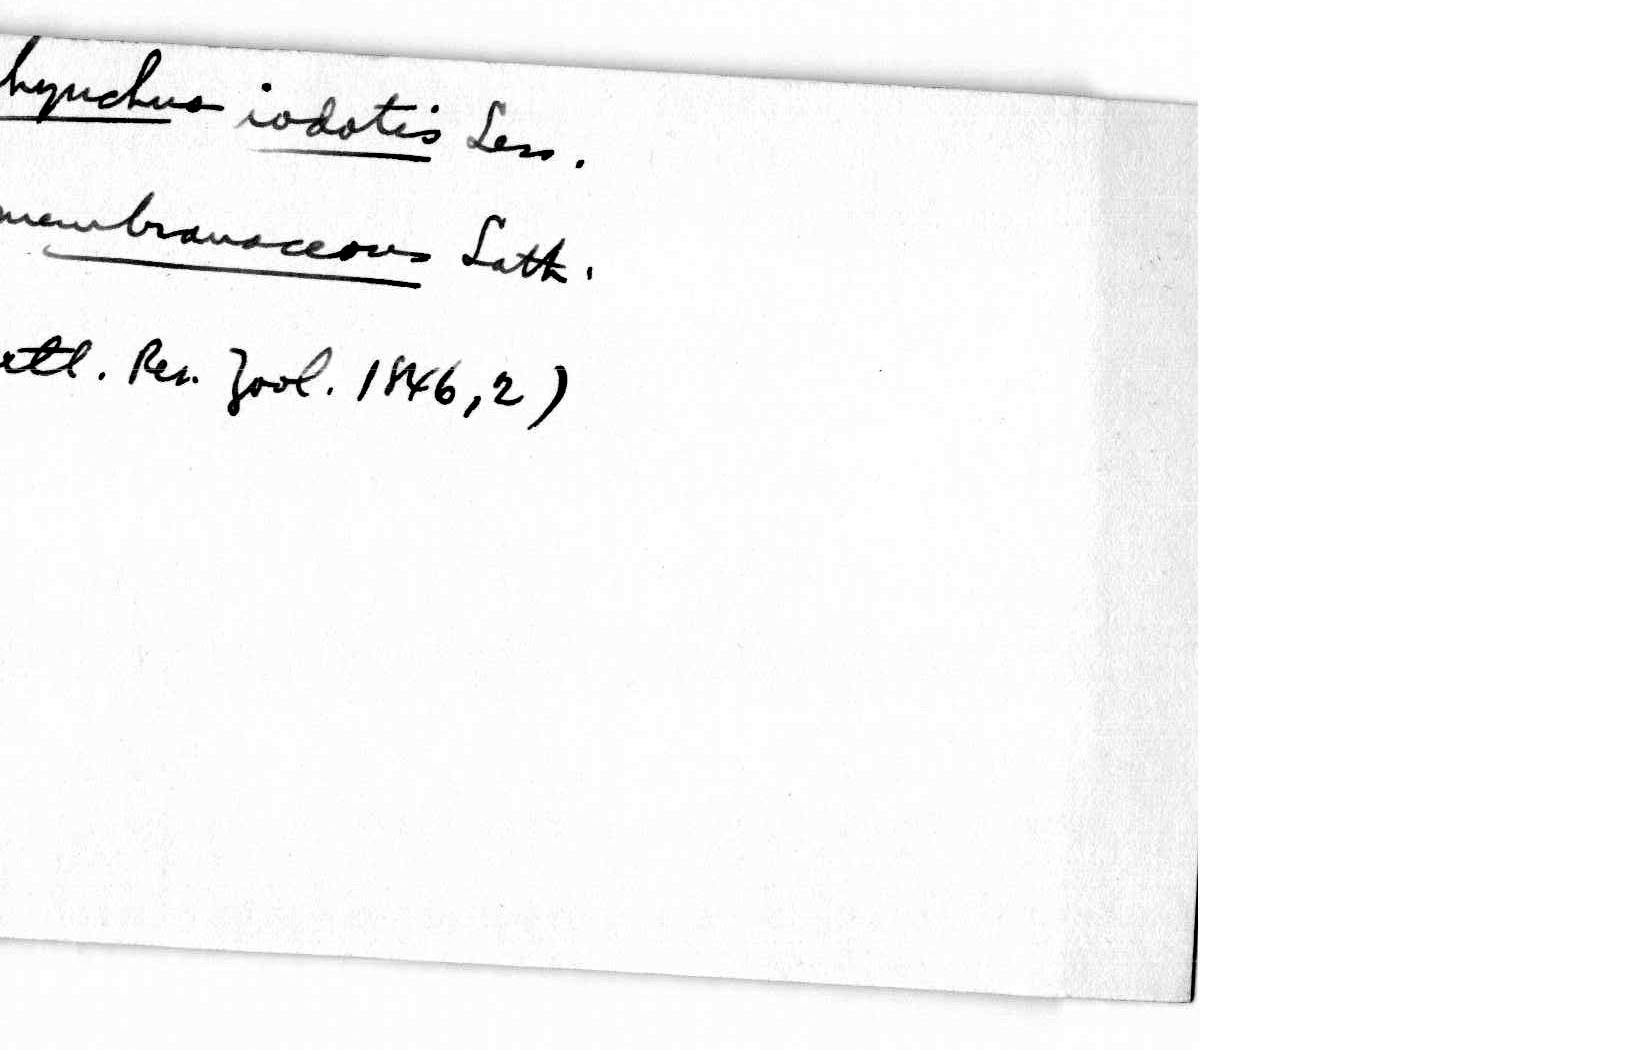 hynchus iodotis Less.
membranaceous Lath.
ertl. Rev. Zool. 1846, 2)